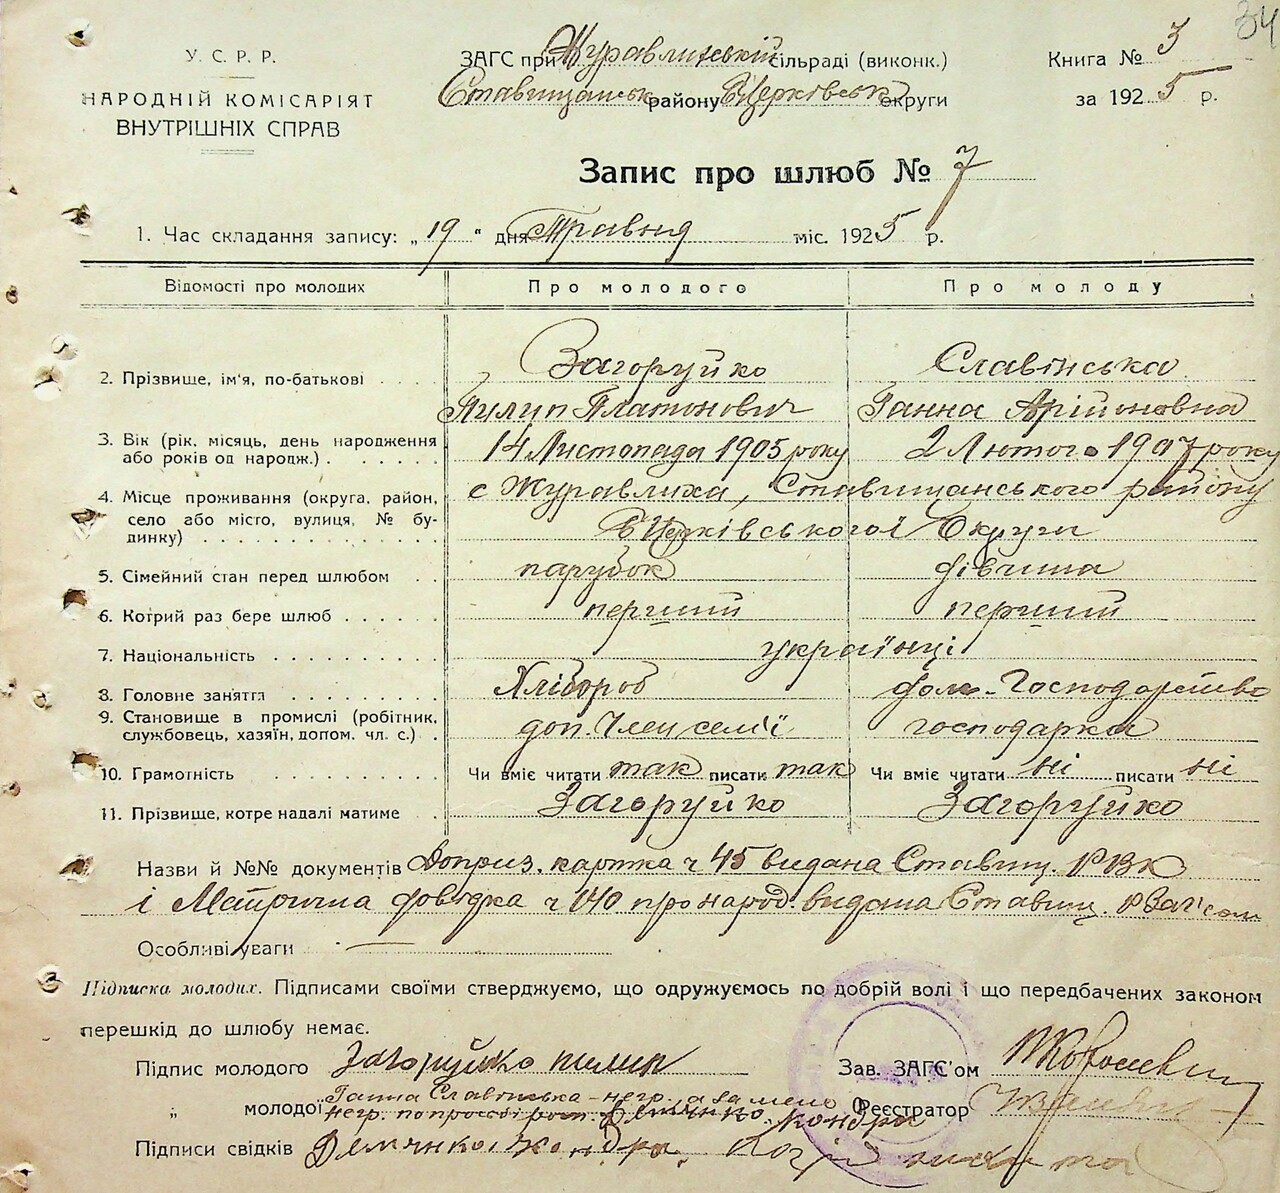 34
У. С. Р. Р.
НАРОДНІЙ КОМІСАРІЯТ
ВНУТРІШНІХ СПРАВ
ЗАГС при Журавлиській сільраді (виконк.)
Ставищанськ району БЦерківськ округи
Книга № 3
за 1925 р.
Запис про шлюб № 7
1. Час складання запису: „19“ дня Травня міс. 1925 р.
Відомості про молодих Про молодого Про молоду
2. Прізвище, ім'я, по-батькові Загоруйко Славінська
Пилип Платонович Ганна Арійоновна
3. Вік (рік, місяць, день народження або років од народж.) 14 Листопада 1905 року 2 Лютого 1907 року
4. Місце проживання (округа, район, село або місто, вулиця, № будинку) с Журавлиха, Ставищанського району
БЦерківської Округи
5. Сімейний стан перед шлюбом парубок дівчина
6. Котрий раз бере шлюб перший перший
7. Національність українці
8. Головне заняття Хлібороб дом. Господарство
9. Становище в промислі (робітник, службовець, хазяїн, допом. чл. с.) доп. Член сем'ї господарка
10. Грамотність Чи вміє читати так писати так Чи вміє читати ні писати ні
11. Прізвище, котре надалі матиме Загоруйко Загоруйко
Назви й №№ документів Доприз. картка ч 45 видана Ставищ. РВК
і Метрична довідка ч 140 про народ. видана Ставищ. РЗаг'сом
Особливі уваги —
Підписка молодих. Підписами своїми стверджуємо, що одружуємось по добрій волі і що передбачених законом
перешкід до шлюбу немає.
Підпис молодого Загоруйко пилип
Зав. ЗАГС'ом
„ молодої Ганна Славінська - негр. а за неї
негр. по просьбі рост. Демянко. Кондра
Реєстратор
Підписи свідків Демянко Кондра.